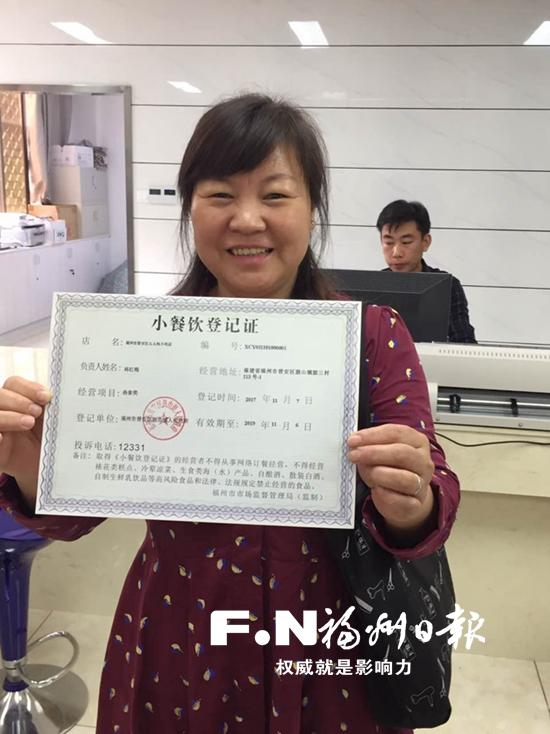 小餐饮登记证
店 名： 编 号： XCY0111910000001
负责人姓名： 经营地址：福建省福州市晋安区鼓山镇歌三村
113号-4
经营项目：热食类 登记时间： 2017 年 11 月 7 日
登记单位： 有效期至： 2019 年 11 月 6 日
投诉电话：12331
备注：取得《小餐饮登记证》的经营者不得从事网络订餐经营，不得经营
裱花类糕点、冷荤凉菜、生食类海（水）产品、自酿酒、散装白酒、
自制生鲜乳饮品等高风险食品和法律、法规规定禁止经营的食品。
福州市市场监督管理局（监制）
F.N福州日报
权威就是影响力